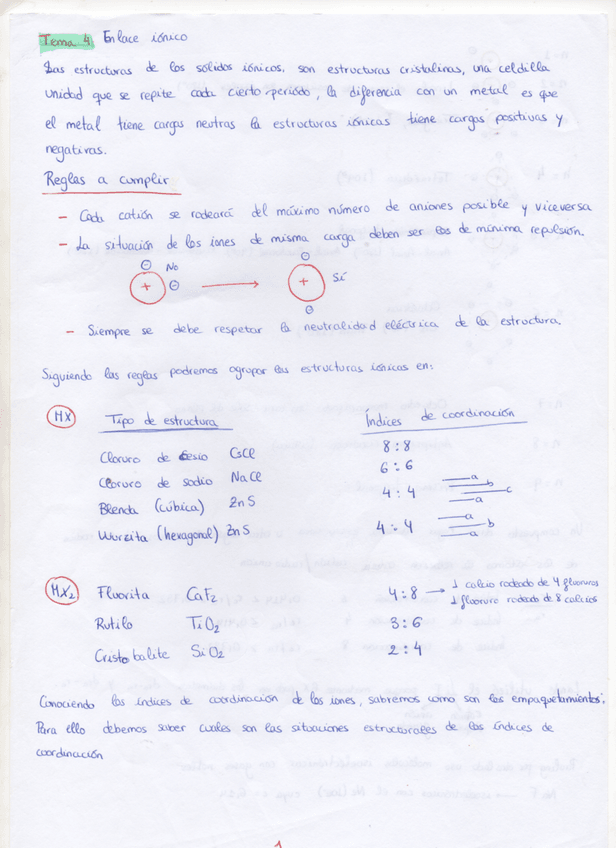 Tema 4 Enlace iónico
Las estructuras de los sólidos iónicos, son estructuras cristalinas, una celdilla
unidad que se repite cada cierto periodo, la diferencia con un metal es que
el metal tiene cargas neutras la estructuras iónicas tiene cargas positivas y
negativas.
Reglas a cumplir
- Cada catión se rodeará del máximo número de aniones posible y viceversa
- La situación de los iones de misma carga deben ser los de mínima repulsión.
⊖ No ⊖
+ ⊖ → + Sí
⊖
- Siempre se debe respetar la neutralidad eléctrica de la estructura.
Siguiendo las reglas podremos agrupar las estructuras iónicas en:
MX Tipo de estructura Índices de coordinación
Cloruro de cesio CsCl 8:8
Cloruro de sodio NaCl 6:6
Blenda (cúbica) ZnS 4:4 a b c a
Wurzita (hexagonal) ZnS 4:4 a b a
MX2 Fluorita CaF2 4:8 → 1 calcio rodeado de 4 fluoruros
1 fluoruro rodeado de 8 calcios
Rutilo TiO2 3:6
Cristobalite SiO2 2:4
Conociendo los índices de coordinación de los iones, sabremos como son los empaquetamientos;
Para ello debemos saber cuales son las situaciones estructurales de los índices de
coordinación
1